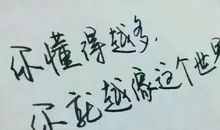 你懂得越多，
你就越像这个世界